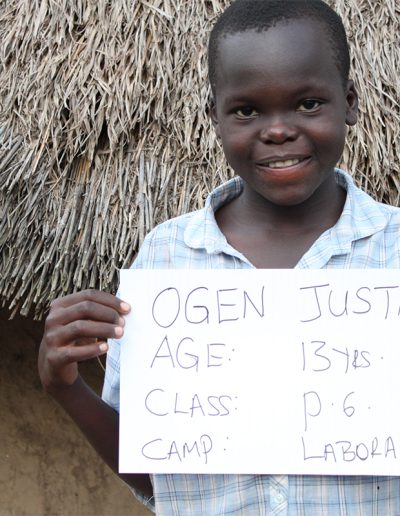 OGEN JUSTA
AGE: 13 yrs.
CLASS: p.6.
CAMP: LABORA